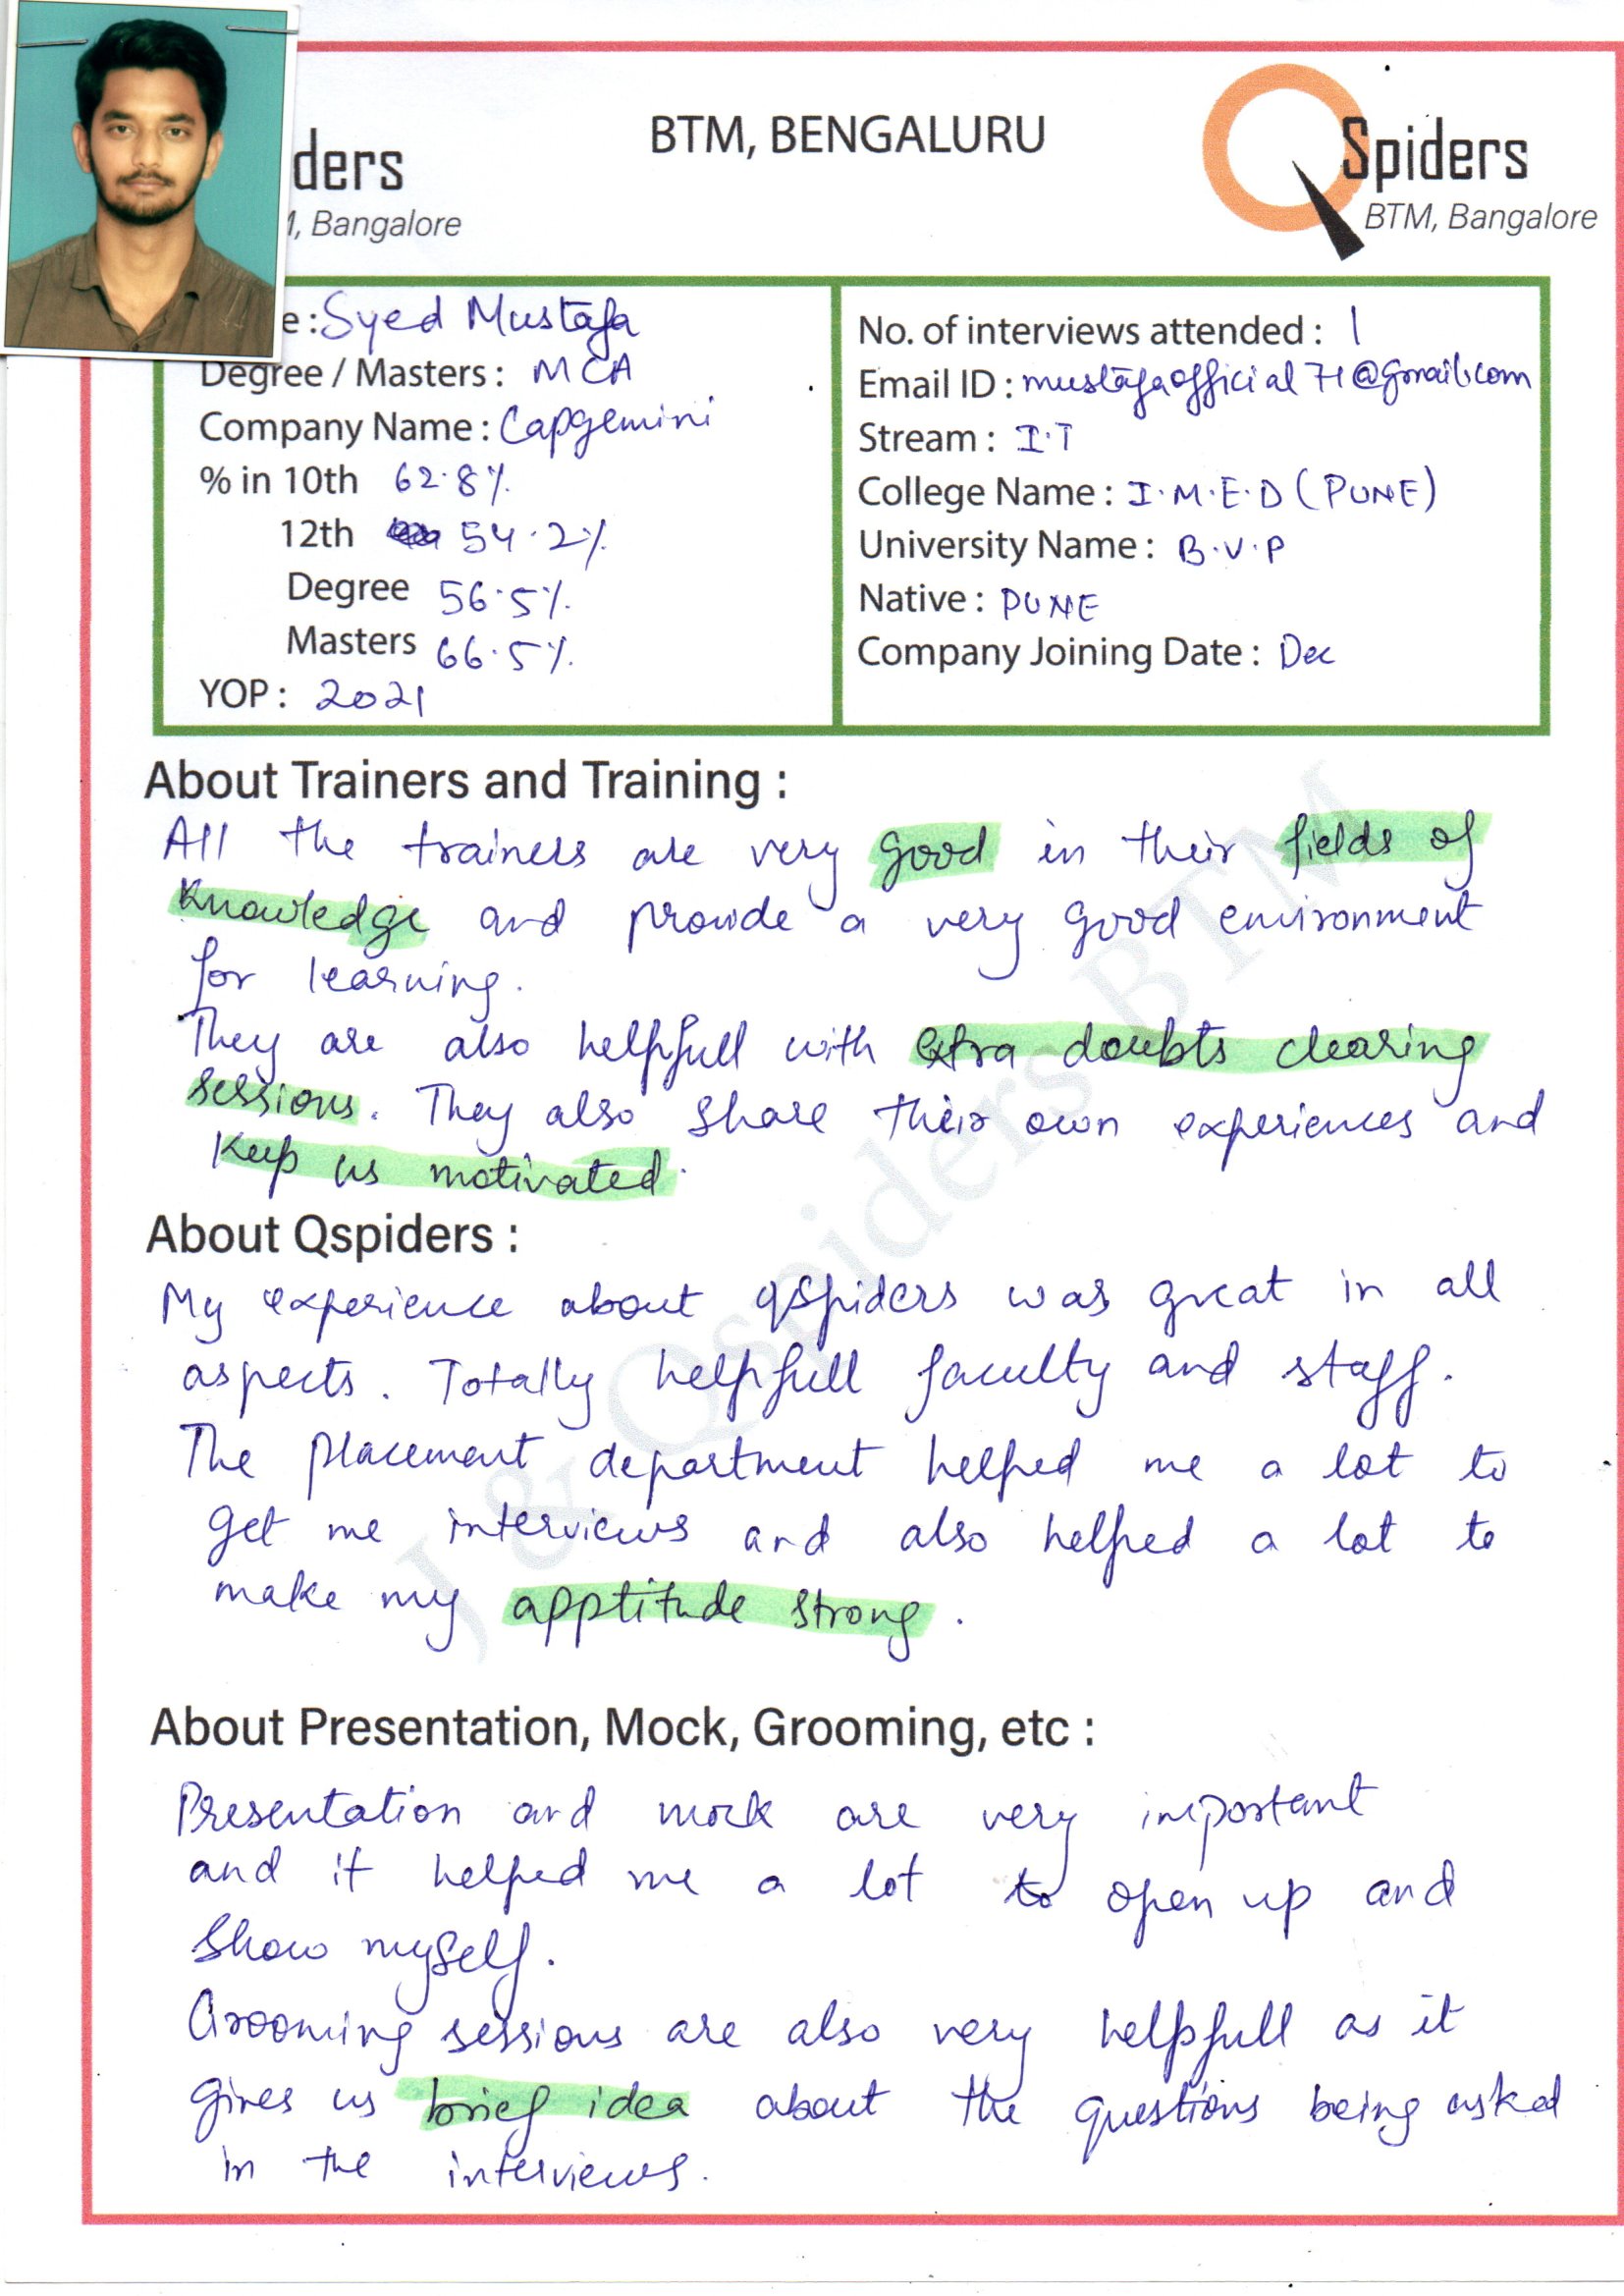 BTM, BENGALURU
ders
, Bangalore
Spiders
BTM, Bangalore
e : Syed Mustafa
Degree / Masters : MCA
Company Name : Capgemini
% in 10th 62.8%
12th 54.2%
Degree 56.5%
Masters 66.5%
YOP : 2021
No. of interviews attended : 1
Email ID : mustafaofficial71@gmail.com
Stream : I.T
College Name : I.M.E.D (PUNE)
University Name : B.V.P
Native : PUNE
Company Joining Date : Dec
About Trainers and Training :
All the trainers are very good in their fields of
knowledge and provide a very good environment
for learning.
They are also helpfull with extra doubts clearing
sessions. They also share their own experiences and
Keep us motivated.
About Qspiders :
My experience about qspiders was great in all
aspects. Totally helpfull faculty and staff.
The placement department helped me a lot to
get me interviews and also helped a lot to
make my apptitude strong.
About Presentation, Mock, Grooming, etc :
Presentation and mock are very important
and it helped me a lot to open up and
show myself.
Grooming sessions are also very helpfull as it
gives us brief idea about the questions being asked
in the interviews.
J & Qspiders BTM